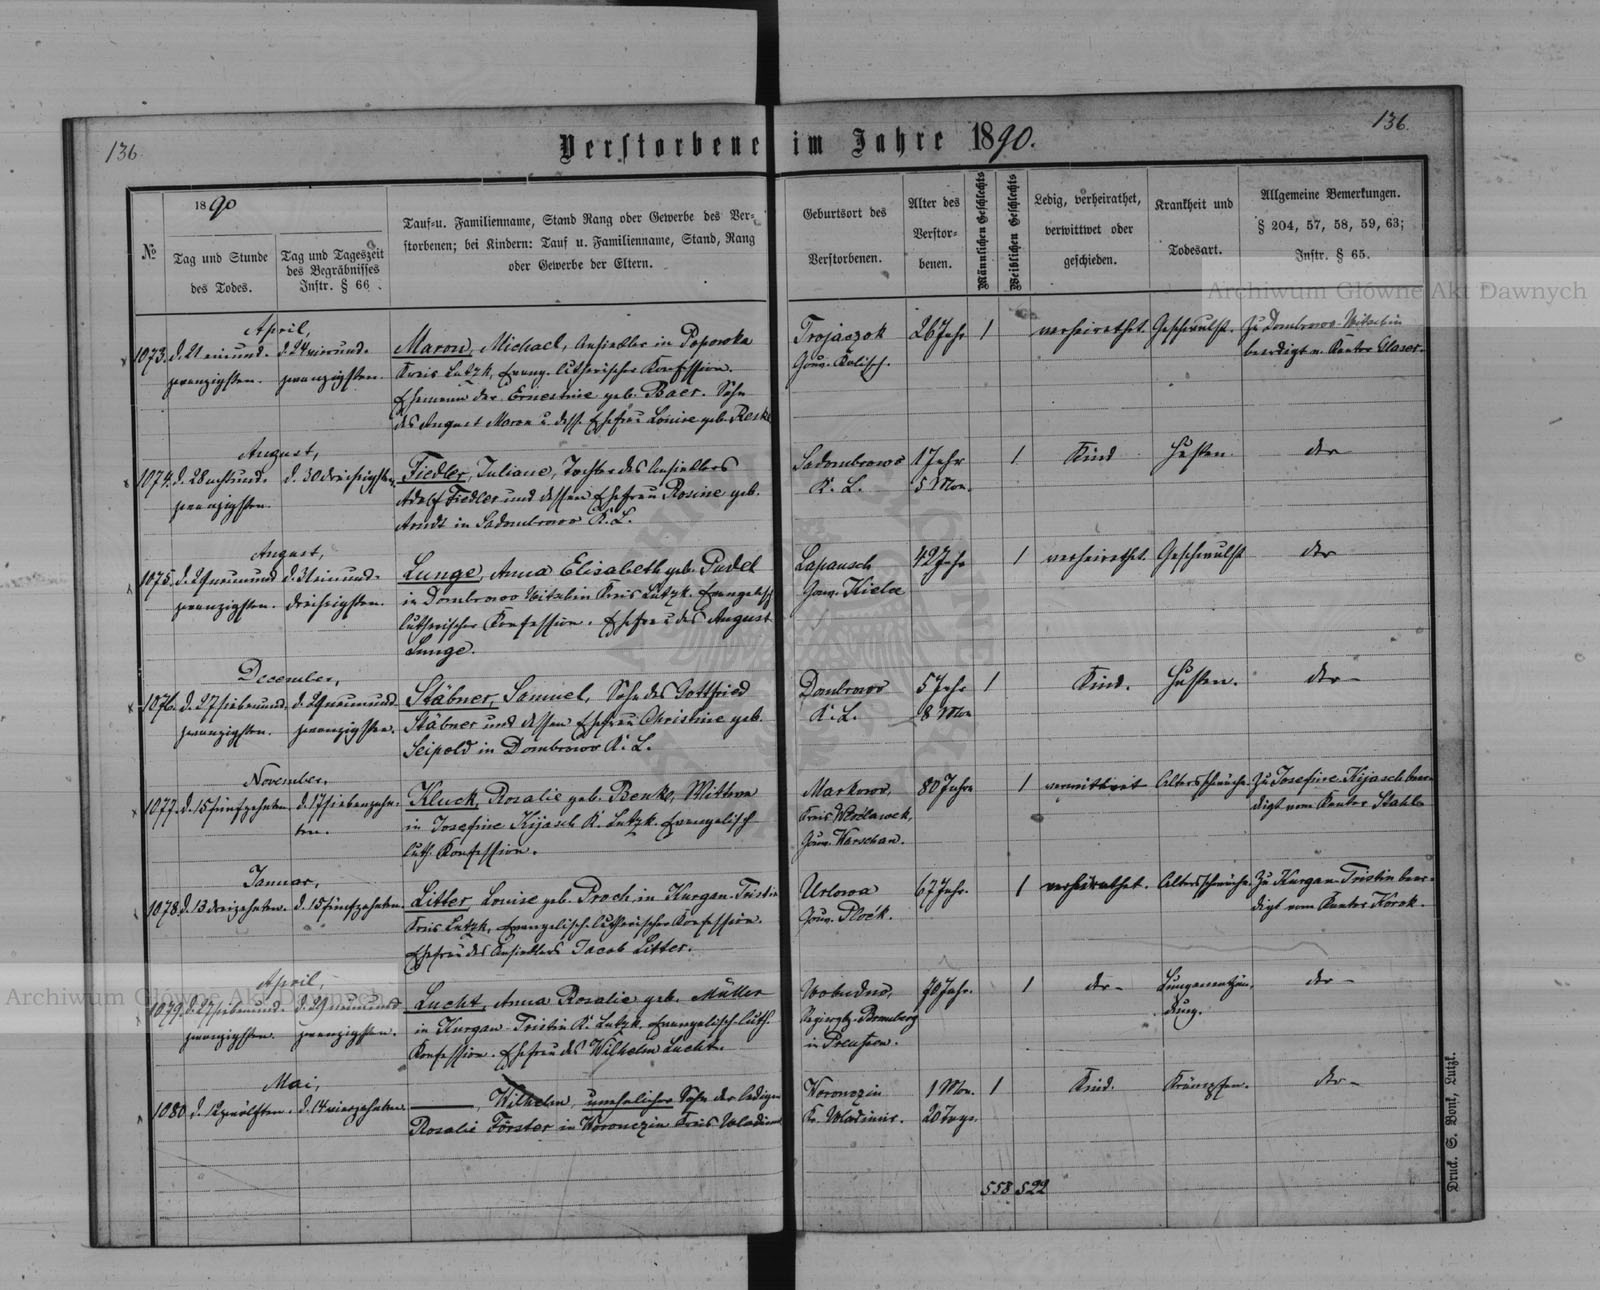 136.
136.
Verstorbene im Jahre 1890.
№
1890
Tag und Stunde
des Todes.
Tag und Tageszeit
des Begräbnisses
Instr. § 66.
Tauf-u. Familienname, Stand Rang oder Gewerbe des Ver-
storbenen; bei Kindern: Tauf u. Familienname, Stand, Rang
oder Gewerbe der Eltern.
Geburtsort des
Verstorbenen.
Alter des
Verstor-
benen.
Männlichen Geschlechts
Weiblichen Geschlechts
Ledig, verheirathet,
verwittwet oder
geschieden.
Krankheit und
Todesart.
Allgemeine Bemerkungen.
§ 204, 57, 58, 59, 63;
Instr. § 65.
April,
1073. d. 21 einund-
zwanzigsten.
d. 24 vierund-
zwanzigsten.
Maron, Michael, Ansiedler in Poporoka
Kreis Lutzk, Evang. lutherischer Konfession.
Ehemann der Ernestine geb. Baer. Sohn
des August Maron u. dess. Ehefrau Louise geb. Reske
Trojaczok
Gouv. Kalisch.
26 Jahr
1
verheirathet.
Geschwulst.
Zu Dombrowo-Witalin
beerdigt v. Kantor Glaser.
August,
1074. d. 28 achtund-
zwanzigsten.
d. 30 dreissigsten.
Fiedler, Juliane, Tochter des Ansiedlers
Adolf Fiedler und dessen Ehefrau Rosine geb.
Arndt in Sadombrowo K. L.
Sadombrowo
K. L.
1 Jahr
5 Mon.
1
Kind
Husten.
der
August,
1075. d. 29 neunund
zwanzigsten.
d. 31 einund-
dreissigsten.
Lunge, Anna Elisabeth geb. Pudel
in Dombrowo Witalin Kreis Lutzk. Evangelisch
lutherischer Konfession. Ehefrau des August
Lunge.
Lapausch
Gouv. Kielce
42 Jahr
1
verheirathet.
Geschwulst
der
December,
1076. d. 27 siebenund-
zwanzigsten.
d. 29 neunund
zwanzigsten.
Stäbner, Samuel, Sohn des Gottfried
Stäbner und dessen Ehefrau Christine geb.
Seipold in Dombrowo K. L.
Dombrowo
K. L.
5 Jahr
8 Mon
1
Kind.
Husten.
der
November,
1077. d. 15 fünfzehnten
d. 17 siebenzehn-
ten.
Kluck, Rosalie geb. Benke, Wittwe
in Josefine Kijasch K. Lutzk. Evangelisch
luth. Konfession.
Markowo,
Kreis Wloclawek,
Gouv. Warschau.
80 Jahre
1
verwittwet
Altersschwäche
Zu Josefine Kijasch beer-
digt vom Kantor Stahl
Januar,
1078. d. 13 dreizehnten.
d. 15 fünfzehnten.
Litter, Louise geb. Proch in Kurgan-Tristin
Kreis Lutzk, Evangelisch-lutherischer Konfession.
Ehefrau des Ansiedlers Jacob Litter.
Urlowa
Gouv. Plock.
67 Jahr.
1
verheirathet.
Altersschwäche.
Zu Kurgan-Tristin beer-
digt vom Kantor
April,
1079. d. 27 siebenund-
zwanzigsten.
d. 29 neunund
zwanzigsten.
Lucht, Anna Rosalie geb. Müller
in Kurgan-Tristin K. Lutzk. Evangelisch-luth.
Konfession. Ehefrau des Wilhelm Lucht.
Regiergbz. Bromberg
in Preussen.
70 Jahr.
1
der
Lungenentzün-
dung.
der
Mai,
1080. d. 12 zwölften.
d. 14 vierzehnten.
Wilhelm, unehelicher Sohn der ledigen
Rosalie Förster in Woronczin Kreis Wladimir
Woronczin
Kr. Wladimir.
1 Mon.
20 Tage.
1
Kind.
Krämpfen.
der
558 522
Druck. S. Bonk, Lutzk.
Archiwum Główne Akt Dawnych
Archiwum Główne Akt Dawnych